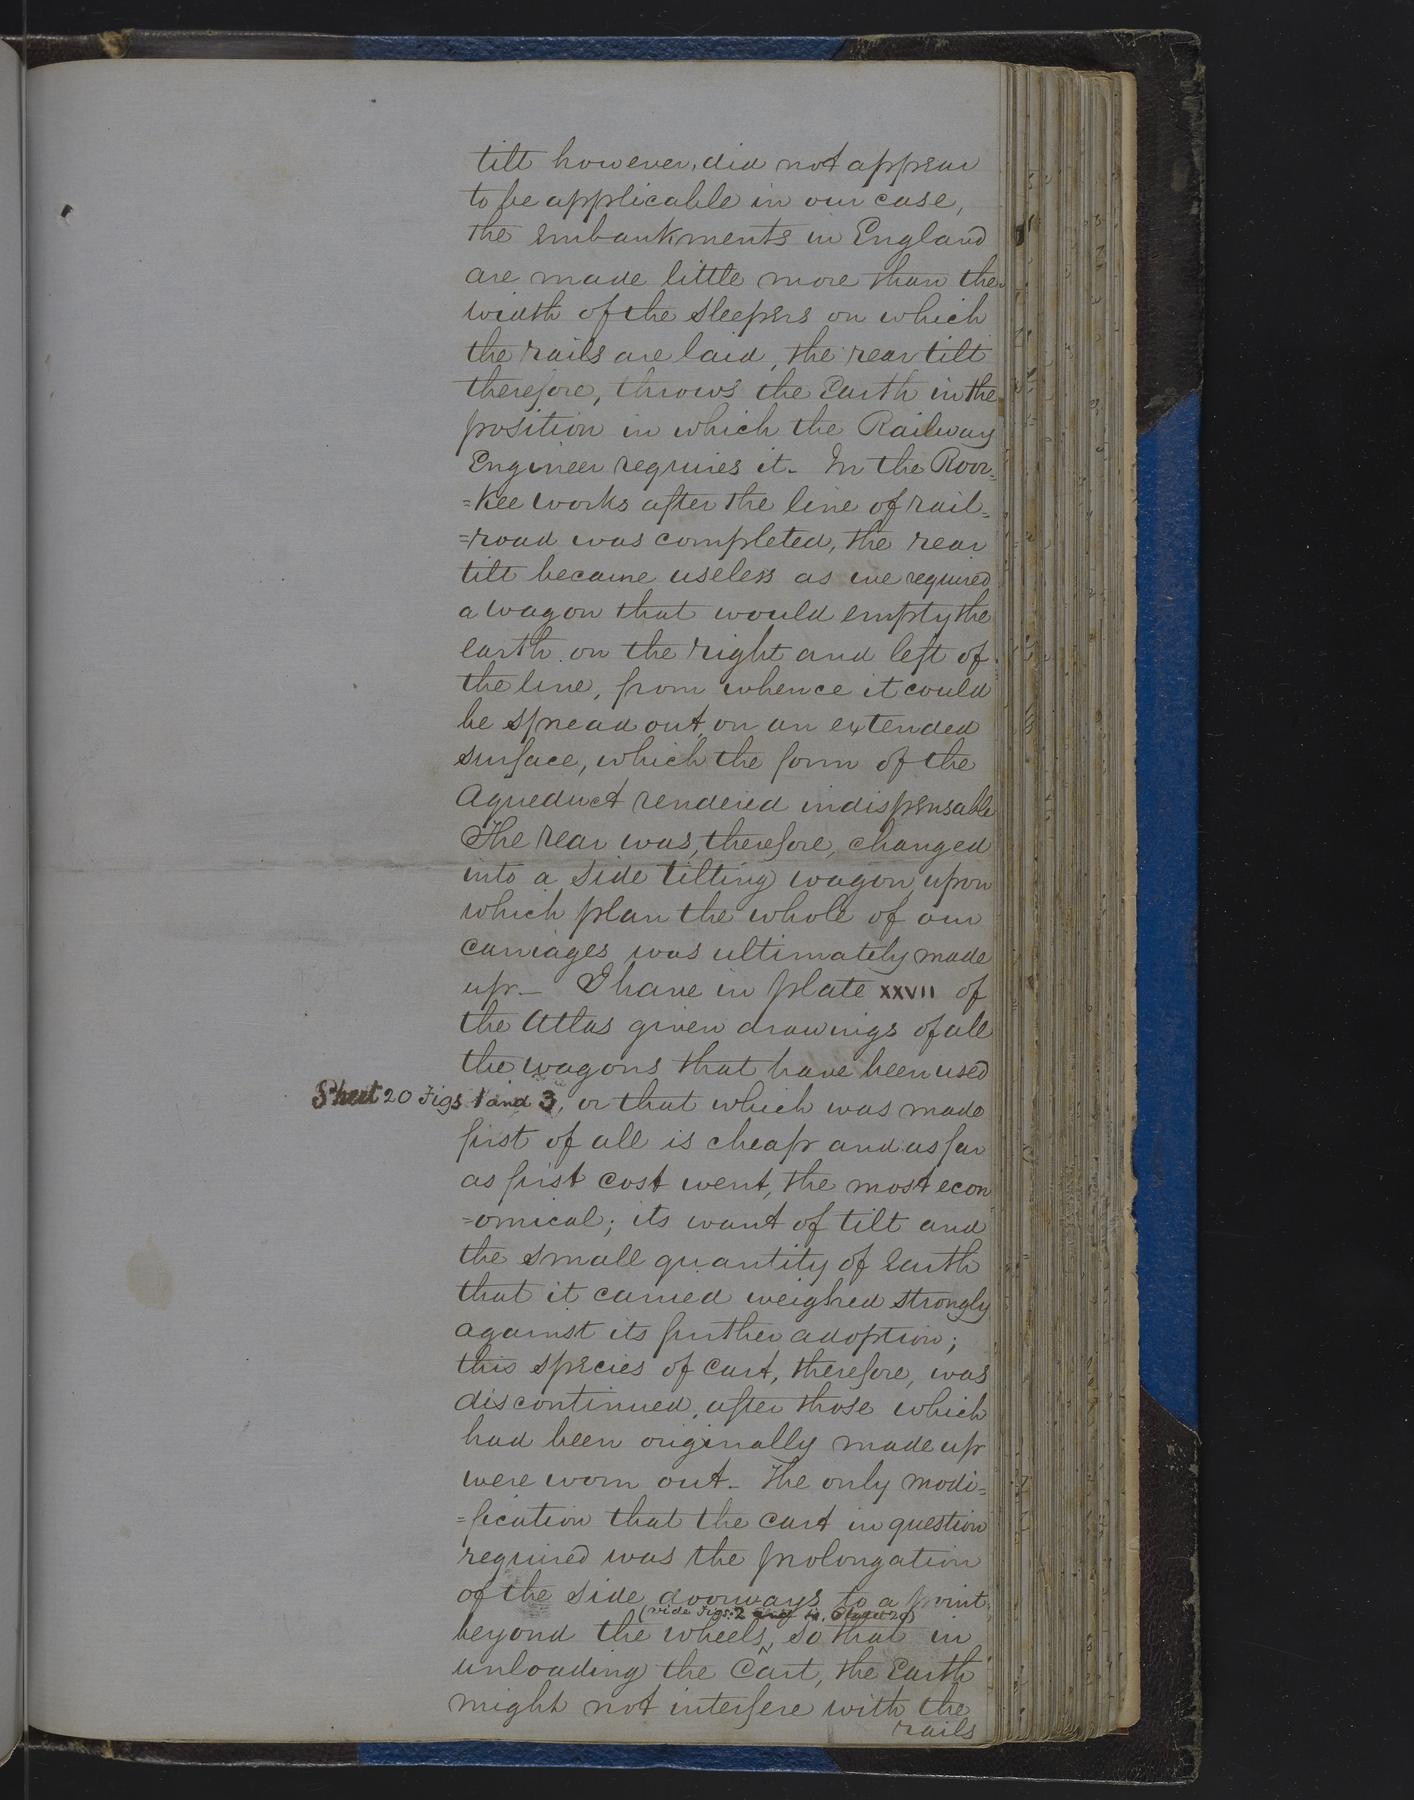 tilt however, did not appear
to be applicable in our case,
the embankments in England
are made little more than the
width of the sleepers on which
the rails are laid, the rear tilt
therefore, throws the Earth in the
position in which the Railway
Engineer requires it. In the Roor=
=kee works after the line of rail=
=road was completed, the rear
tilt became useless as we required
a wagon that would empty the
earth on the right and left of
the line, from whence it could
be spread out on an extended
surface, which the form of the
Aqueduct rendered indispensable
The rear was, therefore, changed
into a side tilting wagon, upon
which plan the whole of our
carriages was ultimately made
up — I have in plate XXVII of
the Atlas given drawings of all
the wagons that have been used
Sheet 20 Figs 1 and 3, or that which was made
first of all is cheap and as far
as first cost went, the most econ
=omical; its want of tilt and
the small quantity of Earth
that it carried weighed strongly
against its further adoption;
this species of cart, therefore, was
discontinued, after those which
had been originally made up
were worn out — The only modi=
=fication that the cart in question
required was the prolongation
of the side doorways to a point
(vide Figs: 2
beyond the wheels, so that in
unloading the Cart, the Earth
might not interfere with the
rails